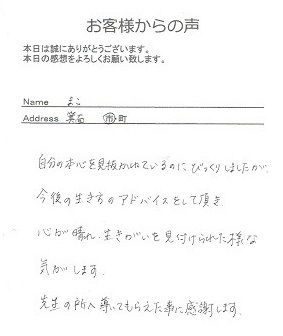 お客様からの声
本日は誠にありがとうございます。
本日の感想をよろしくお願い致します。
Name まこ
Address 箕面 市町
自分の本心を見抜かれているのにびっくりしましたが
今後の生き方のアドバイスをして頂き
心が晴れ、生きがいを見付けられた様な
気がします。
先生の所へ導いてもらえた事に感謝します。